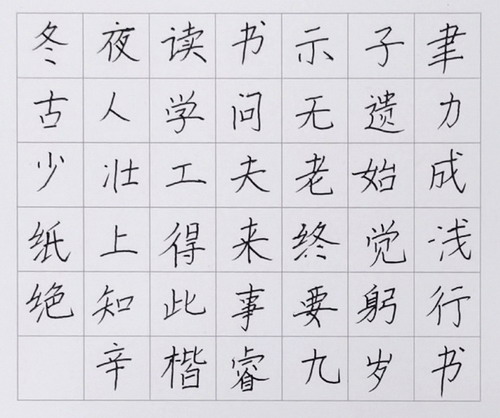 冬夜读书示子聿
古人学问无遗力
少壮工夫老始成
纸上得来终觉浅
绝知此事要躬行
辛楷睿九岁书